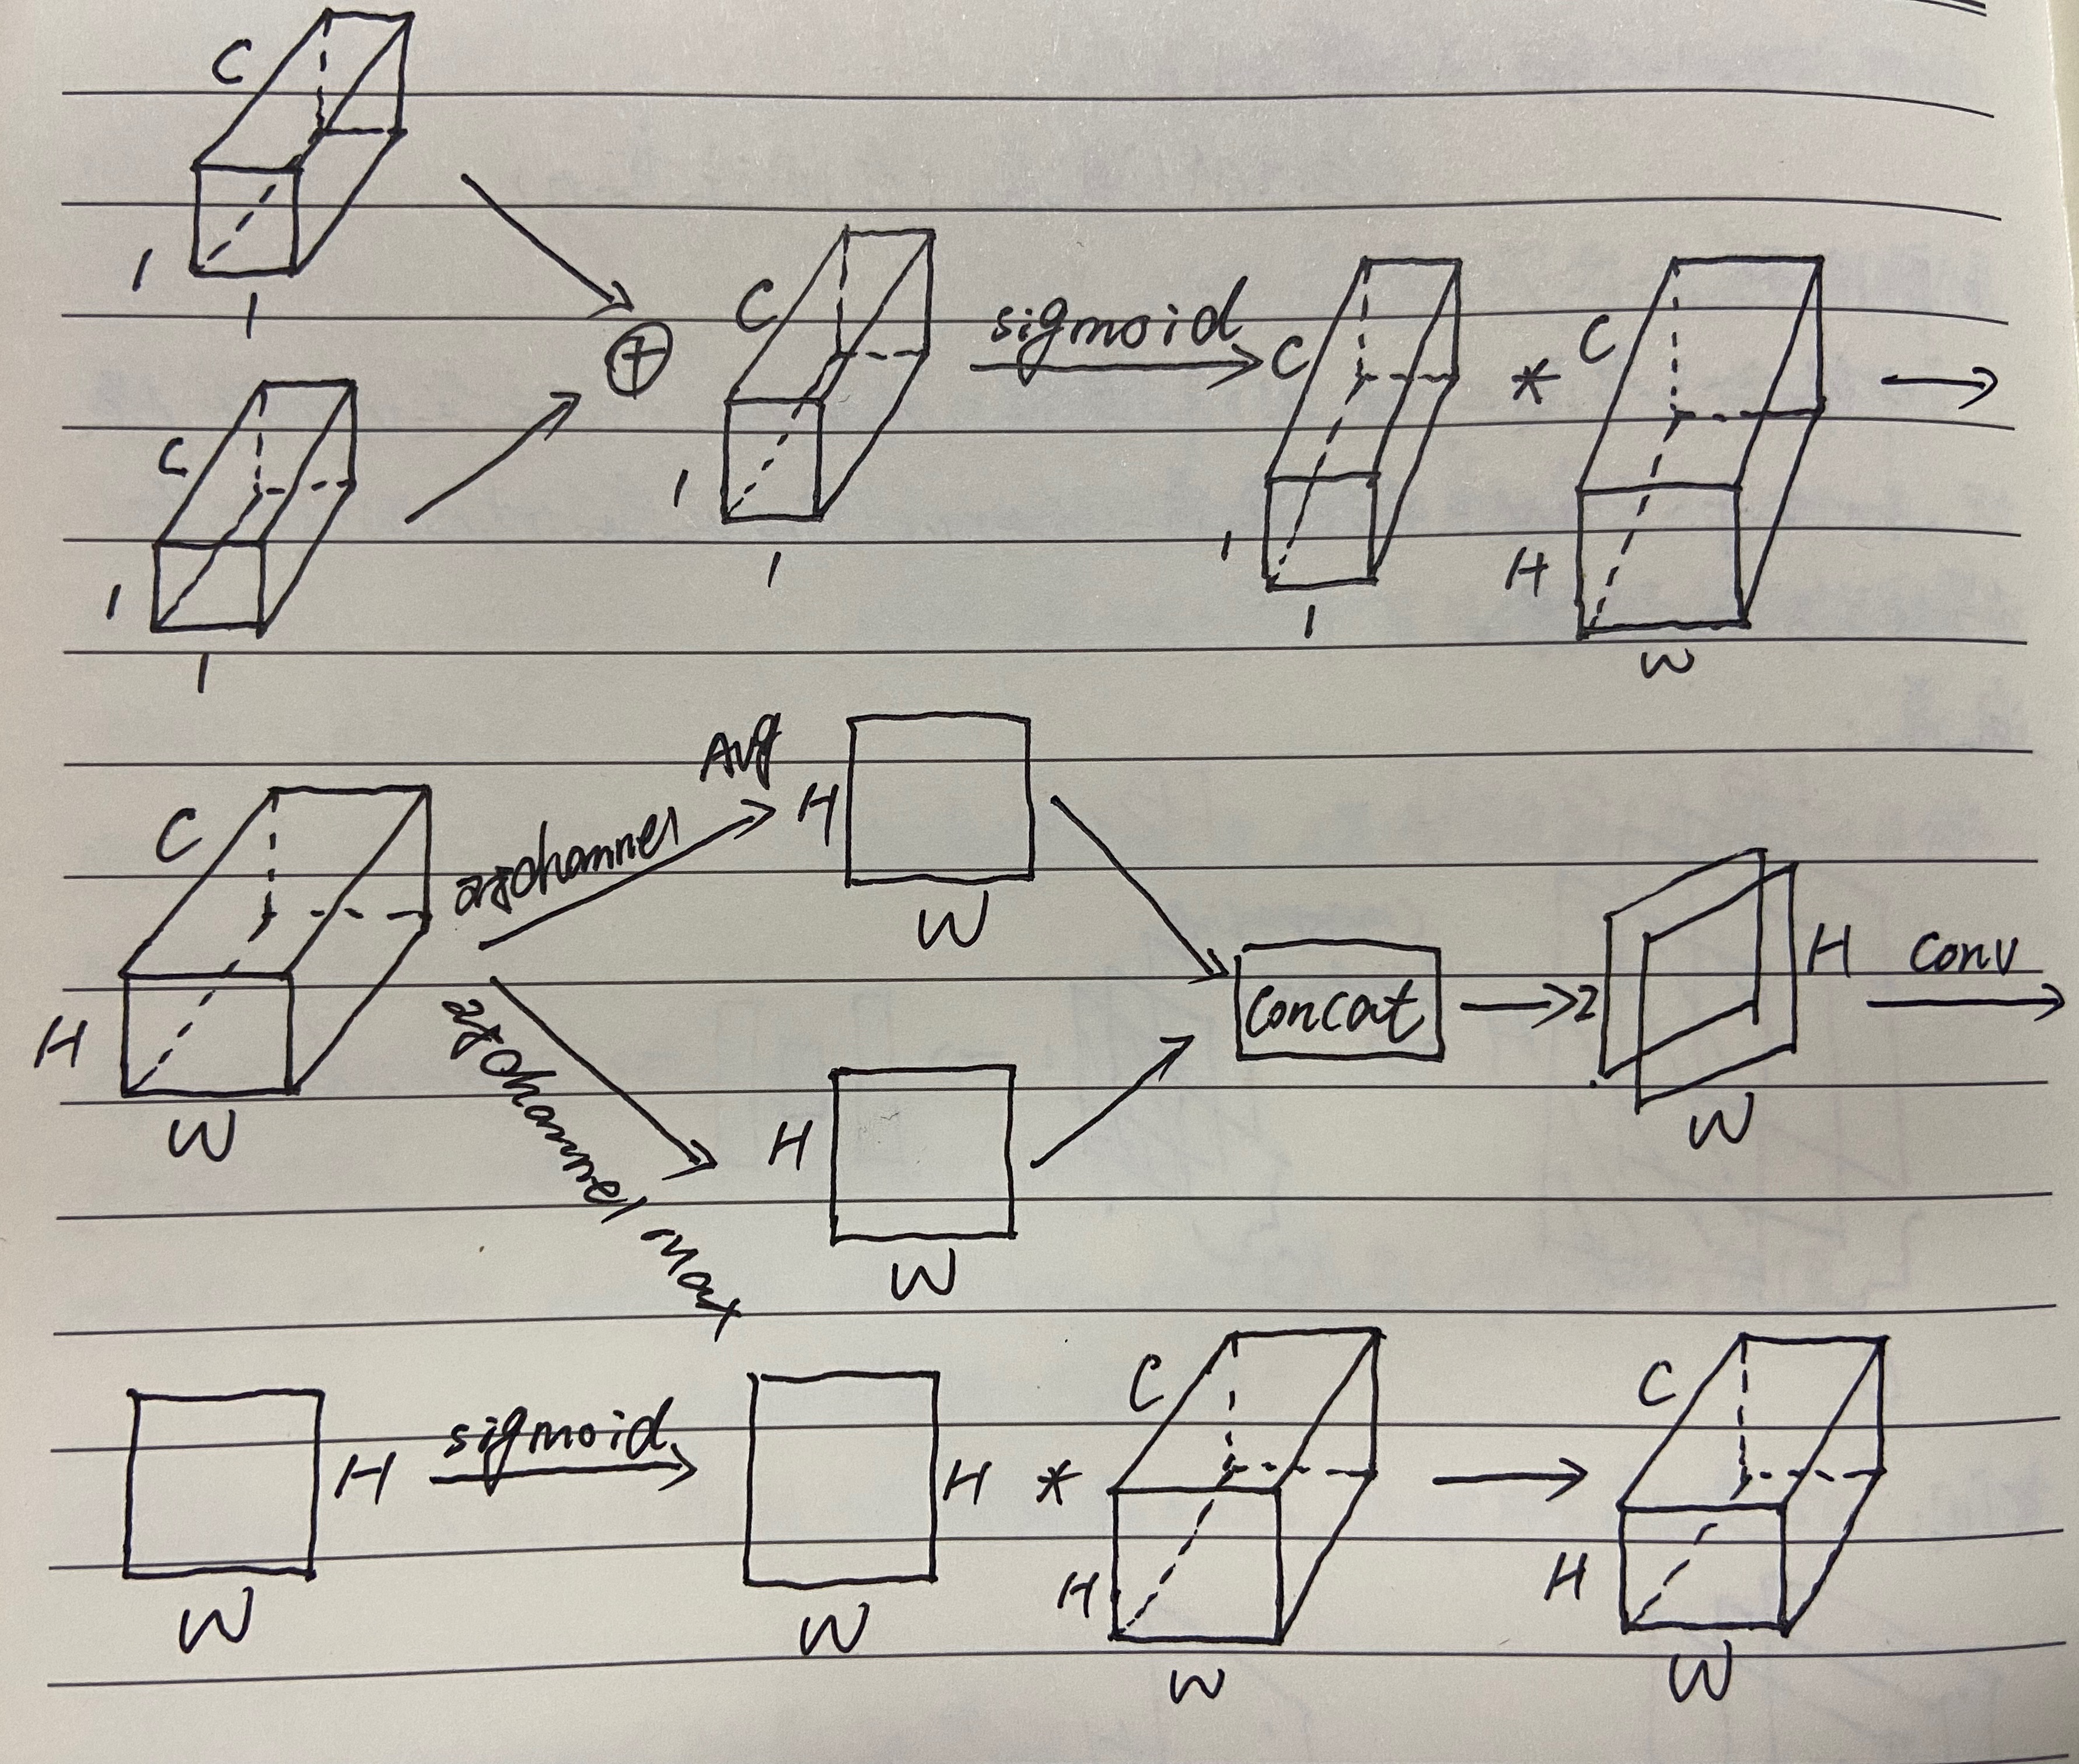 C
1
1
C
1
1
⊕
C
1
1
sigmoid
C
1
1
*
C
H
W
C
H
W
Avg
channel
H
W
channel Max
H
W
concat
2
H
W
conv
W
H
sigmoid
W
H
*
C
H
W
C
H
W